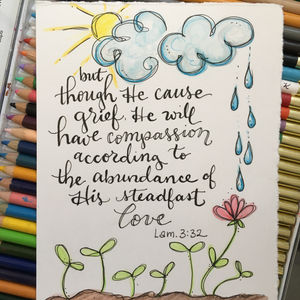 but
though He cause
grief, He will
have compassion
according to
the abundance of
His steadfast
love
Lam. 3:32